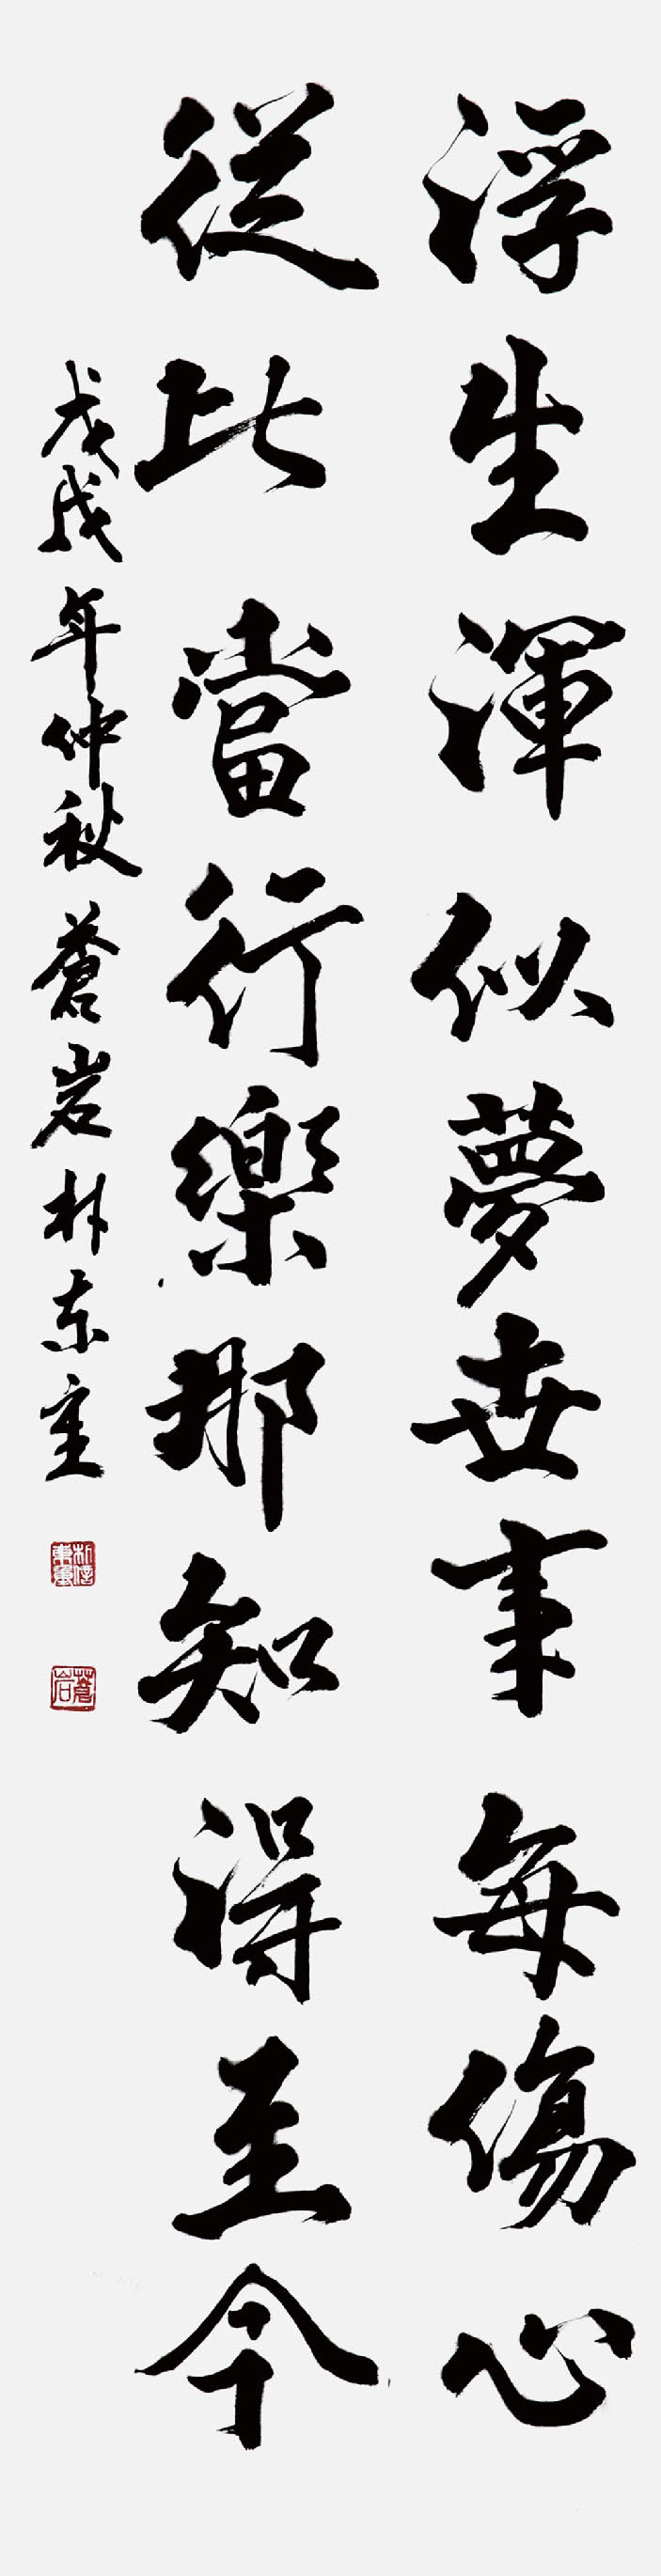 浮生渾似夢世事每傷心
從此當行樂那知得至今
戊戌年仲秋蒼岩朴东重
蒼岩